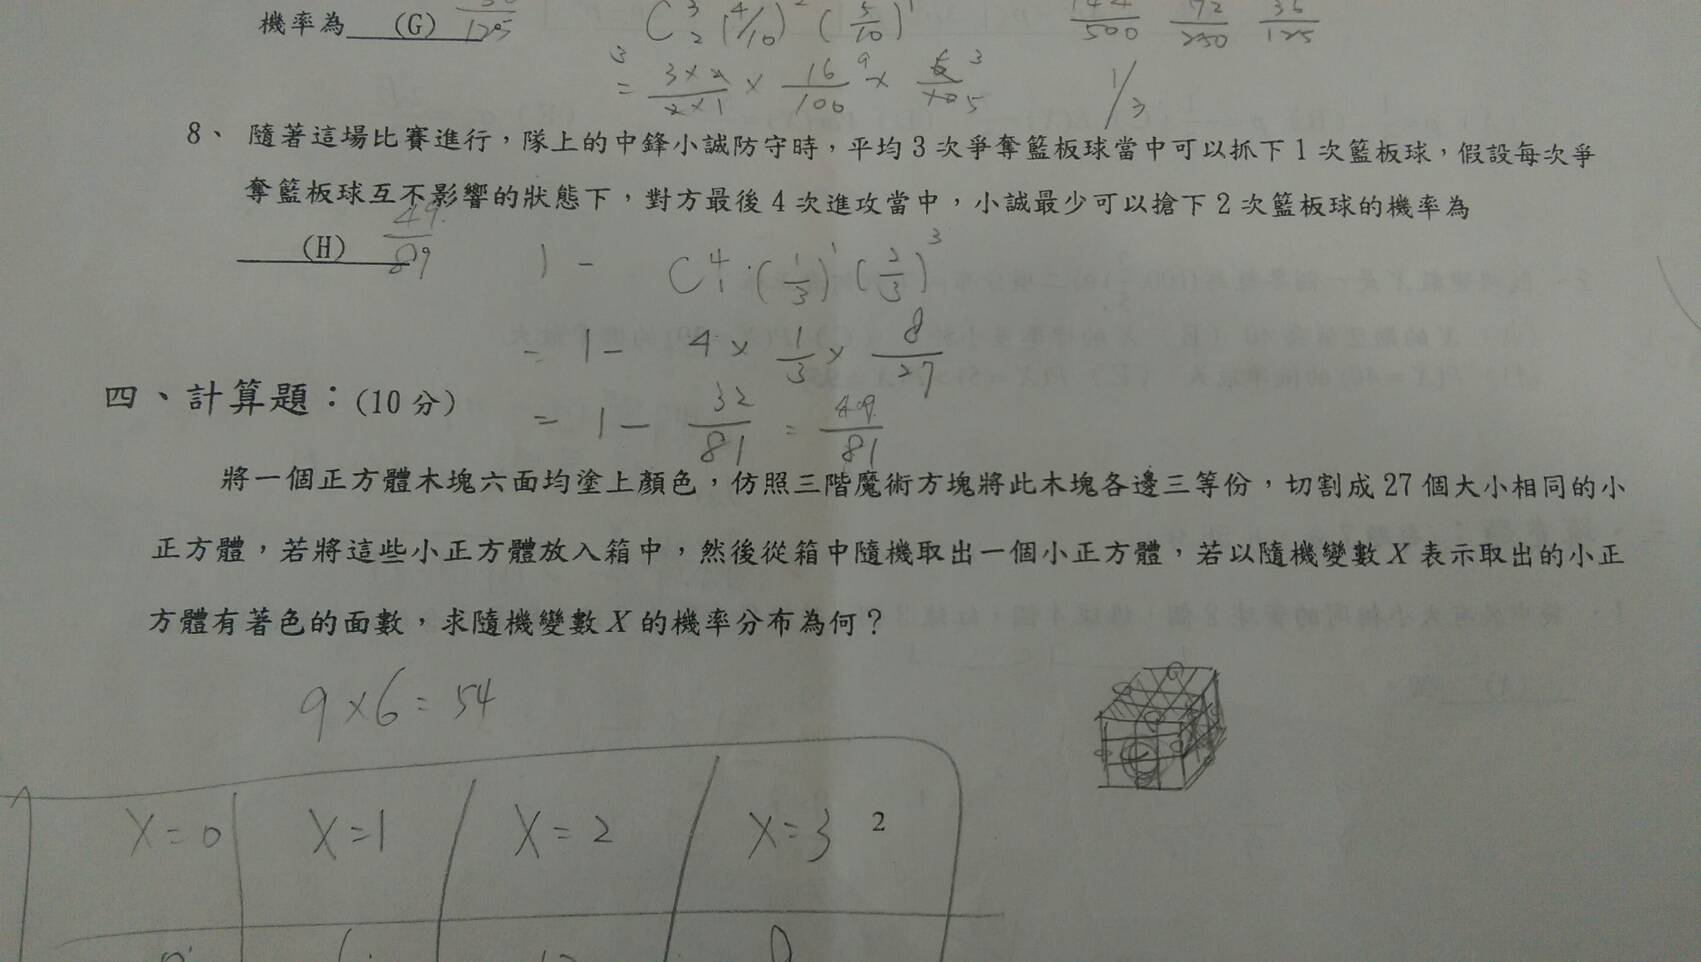 機率為 (G) 125
C 3 2 (4/10)² (5/10)¹ 144/500 72/250 36/125
= 3×2/2×1 × 16/100 ×
1/3
8、 隨著這場比賽進行，隊上的中鋒小誠防守時，平均 3 次爭奪籃板球當中可以抓下 1 次籃板球，假設每次爭
奪籃板球互不影響的狀態下，對方最後 4 次進攻當中，小誠最少可以搶下 2 次籃板球的機率為
(H) 49
1 - C 4 1 · (1/3)¹ (2/3)³
= 1 - 4 × 1/3 × 8/27
四、計算題：(10 分)
= 1 - 32/81 = 49/81
將一個正方體木塊六面均塗上顏色，仿照三階魔術方塊將此木塊各邊三等份，切割成 27 個大小相同的小
正方體，若將這些小正方體放入箱中，然後從箱中隨機取出一個小正方體，若以隨機變數 X 表示取出的小正
方體有著色的面數，求隨機變數 X 的機率分布為何？
9×6=54
X=0 X=1 X=2 X=3
2